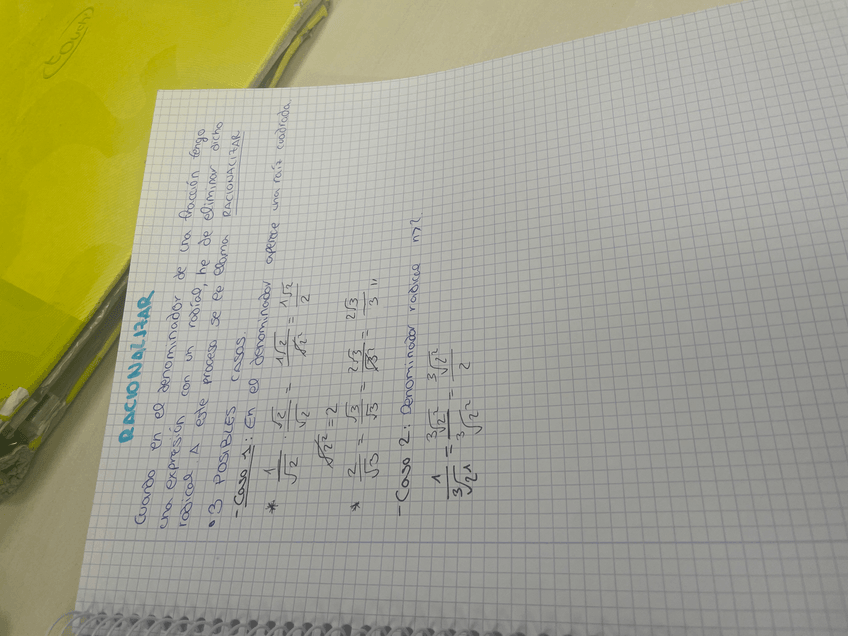 touch
RACIONALIZAR
Cuando en el denominador de una fracción tengo
una expresión con un radial, he de eliminar dicho
radical A este proceso se le llama RACIONALIZAR
• 3 POSIBLES CASOS
- Caso 1: En el denominador aparece una raíz cuadrada
* 1/√2 · √2/√2 = 1√2/√2² = 1√2/2
√2² = 2
* 2/√3 = √3/√3 = 2√3/√3² = 2√3/3 "
- Caso 2: Denominador radical n>2
1/∛2¹ = ∛2²/∛2² = ∛2²/2